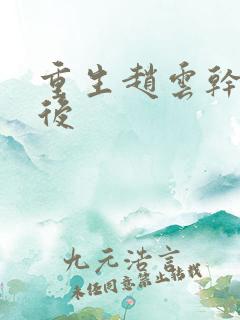 重生趙雲幹
後
九元浩言
未经同意禁止转载